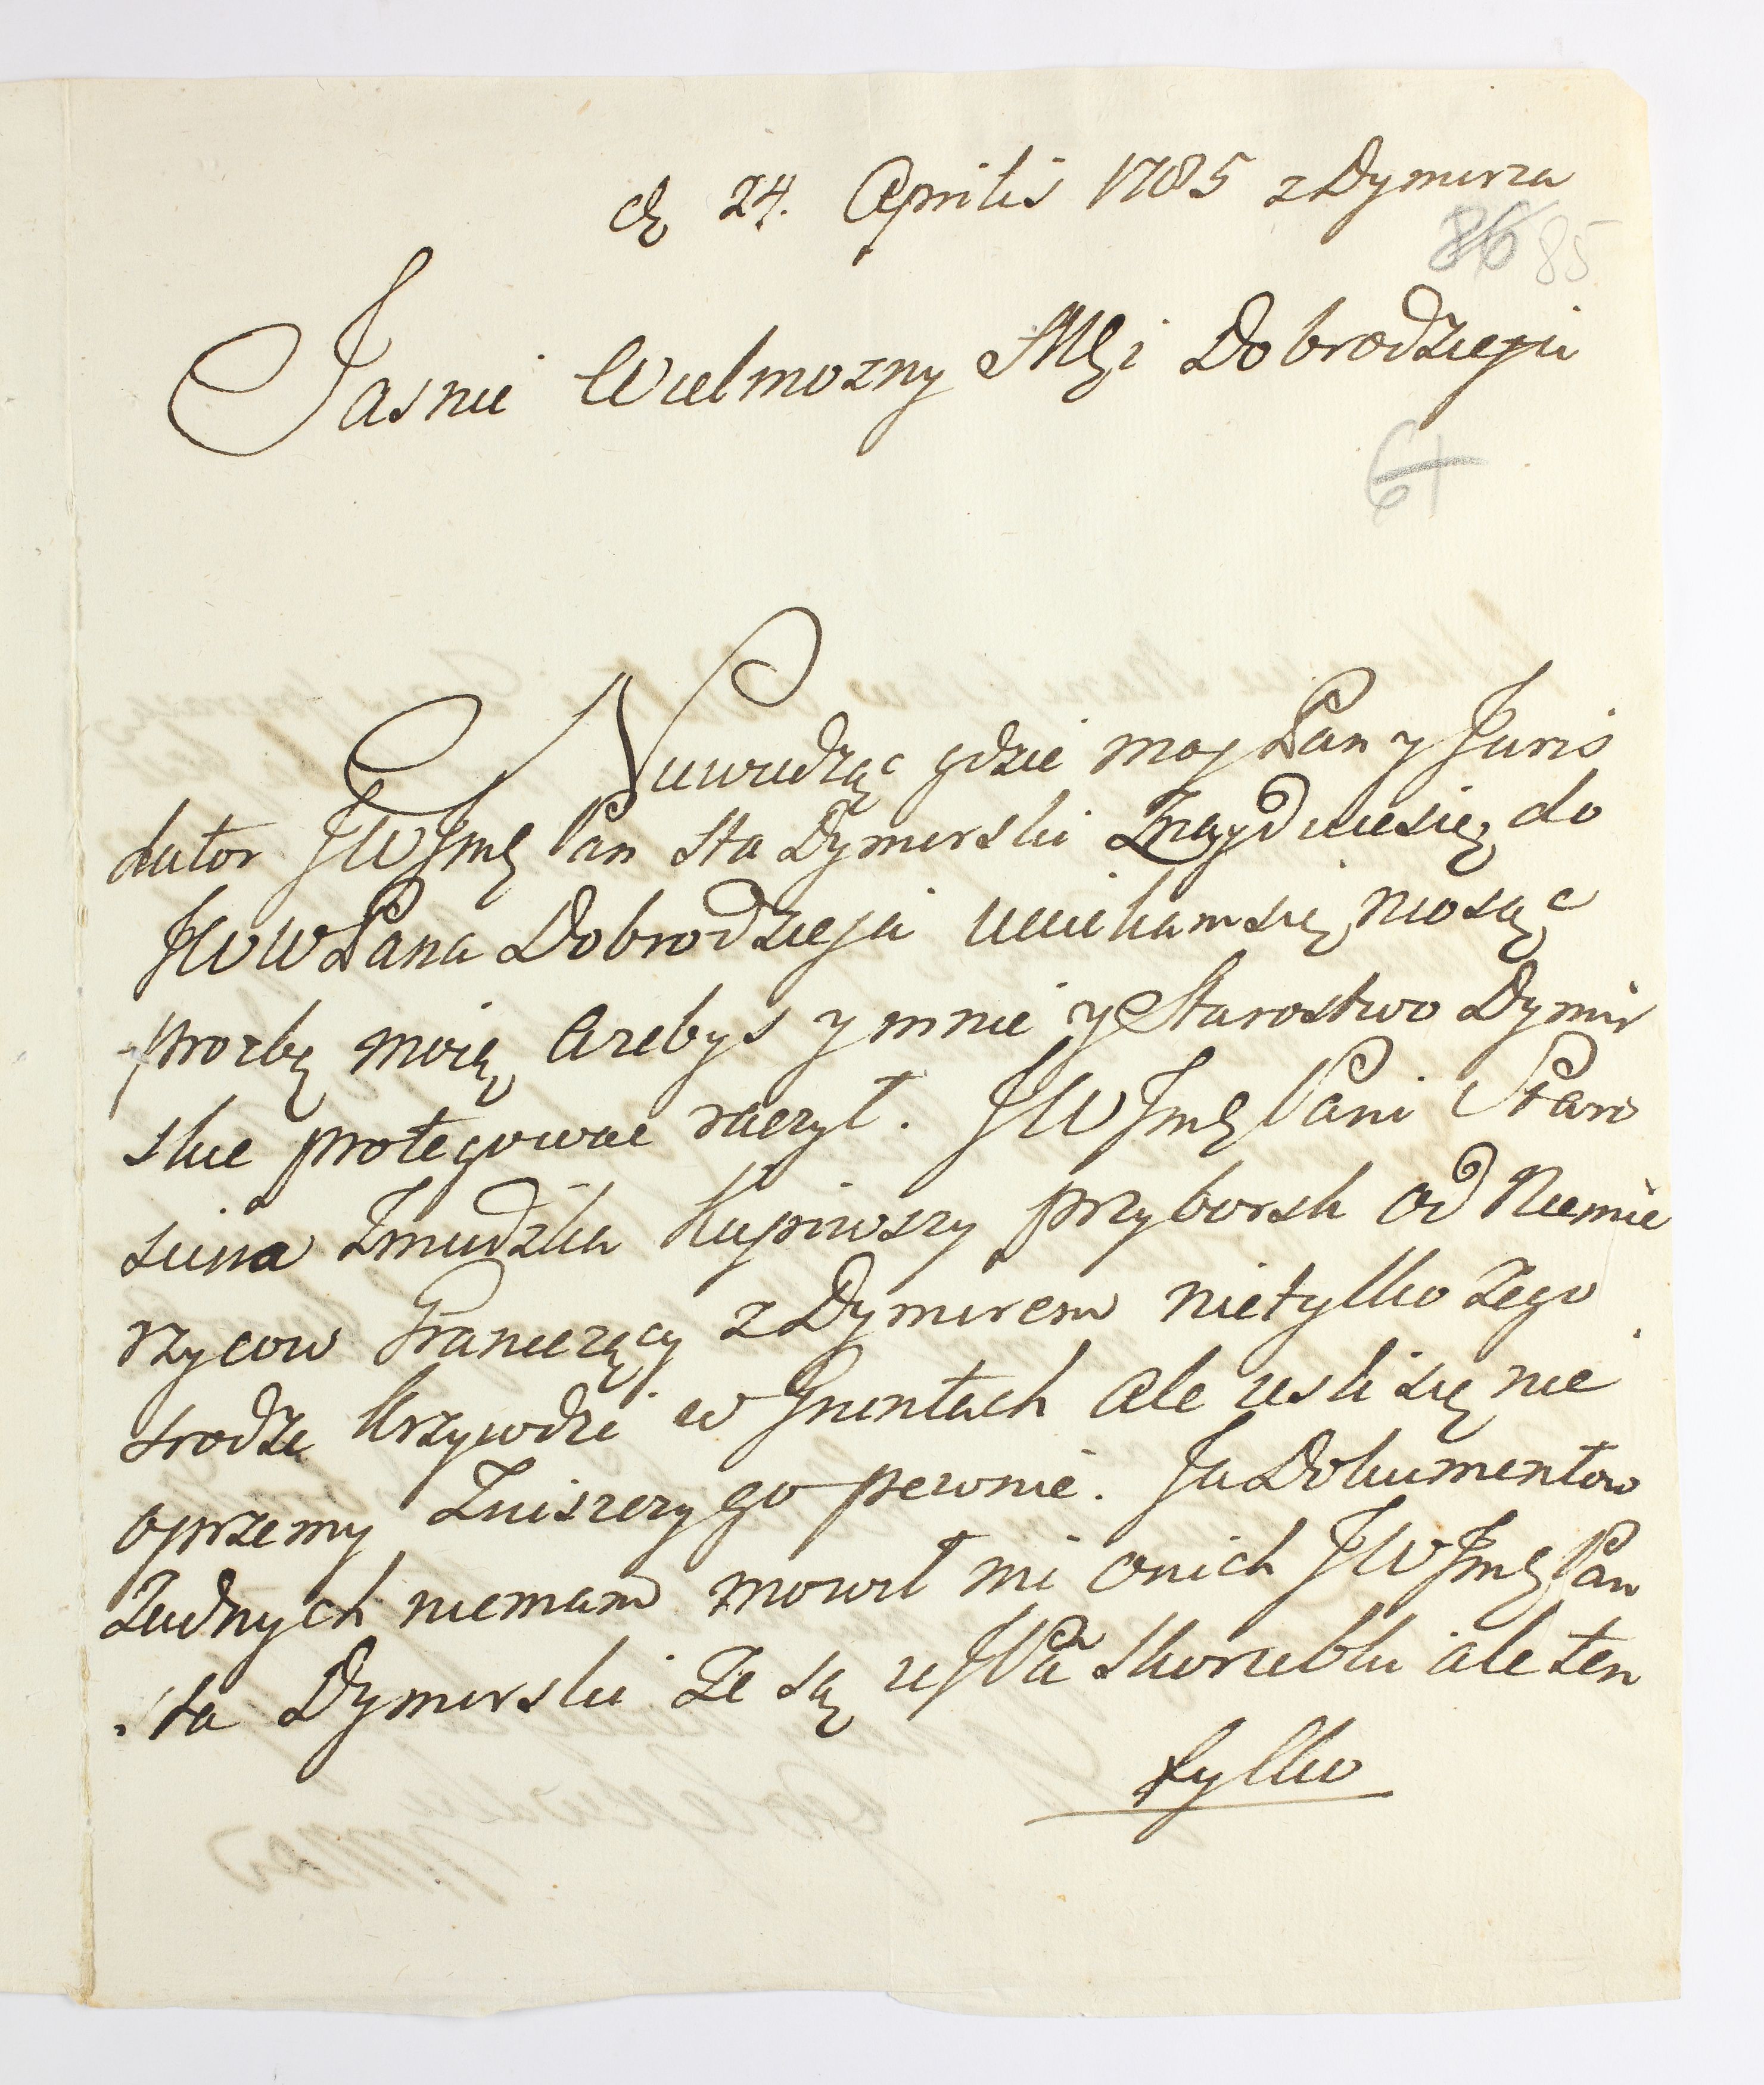 d. 24. Aprilis 1785 z Dymirza
86 85
Jasnie Wielmozny Mci Dobrodzieju
61
Niewiedząc gdzie moy Pan y Juris
dator JW Jmę Pan Sta Dymirski Znaydujesię, do
JWWPana Dobrodzieja uciekamsię niosąc
prozbę moię, Azebys y mnie y Starostwo Dymir
skie protegowac raczył. JWJmę Pani Staro
scina Zmudzka kupiwszy Przyborsk od Niemie
rzycow Graniczący z Dymirem nietylko Zego
srodze krzywdzi w Gruntach ale iesli się nie
oprzemy Zniszczy go pewnie. Ja Dokumentow
Zadnych niemam mowił mi onich JWJmę Pan
Sta Dymirski Ze są u JPa Skorubki ale ten
tylko